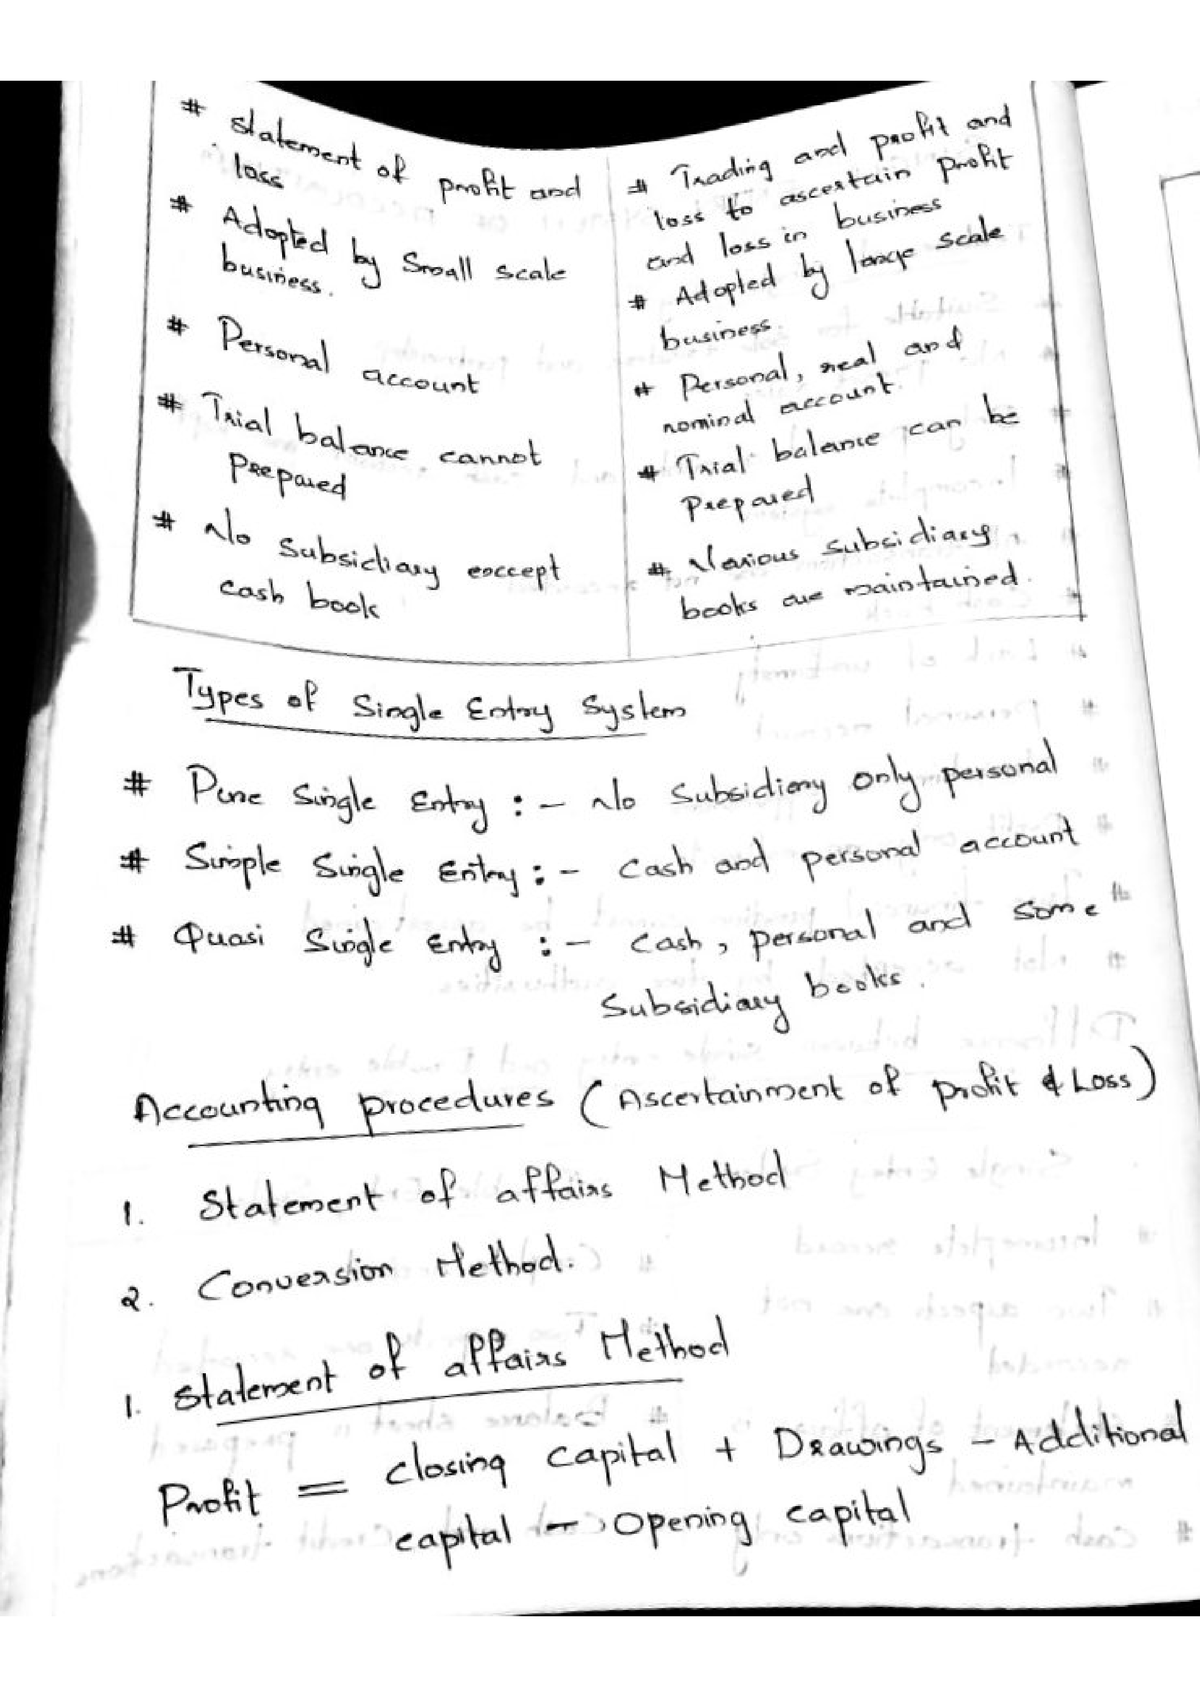 # Statement of profit and
loss
# Adopted by Small scale
business.
# Personal account
# Trial balance cannot
Prepared
# No Subsidiary exccept
cash book
# Trading and profit and
loss to ascertain profit
and loss in business
# Adopted by large scale
business
# Personal, real and
nominal account.
# Trial balance can be
Prepared
# Various subsidiary
books are maintained.
Types of Single Entry System
# Pure Single Entry :- No Subsidiary only personal
# Simple Single Entry :- Cash and personal account
# Quasi Single Entry :- Cash, personal and some
Subsidiary books.
Accounting procedures (Ascertainment of profit & Loss)
1. Statement of affairs Method
2. Conversion Method.
1. Statement of affairs Method
Profit = closing capital + Drawings - Additional
capital - Opening capital